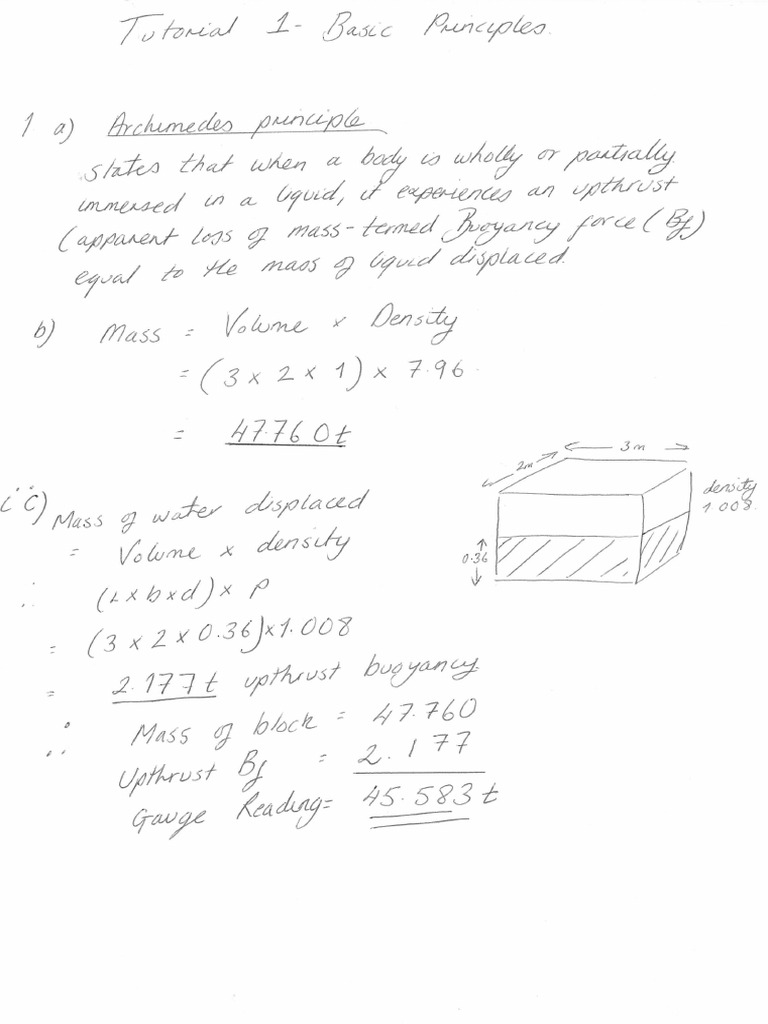 Tutorial 1- Basic Principles.
1 a) Archimedes principle
states that when a body is wholly or partially
immersed in a liquid, it experiences an upthrust
(apparent loss of mass-termed Buoyancy force (Bf)
equal to the mass of liquid displaced.
b) Mass = Volume x Density
= (3 x 2 x 1) x 7.96
= 47.760t
3m
2m
density
1.008.
0.36
i c) Mass of water displaced
= Volume x density
∴ (L x b x d) x ρ
= (3 x 2 x 0.36) x 1.008
= 2.177t upthrust buoyancy
∴ Mass of block = 47.760
Upthrust Bf = 2.177
Gauge Reading = 45.583t